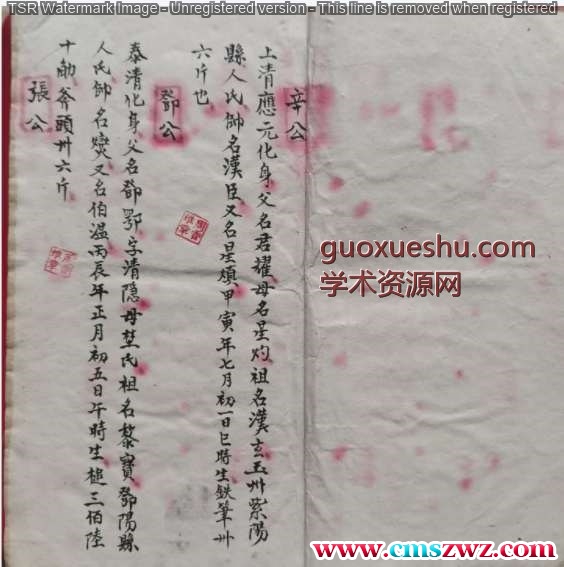 TSR Watermark Image - Unregistered version - This line is removed when registered
辛公
上清應元化身父名君耀母名星灼祖名漢玄玉州紫陽
縣人氏帥名漢臣又名星煩甲寅年七月初一日巳時生鉄筆卅
六斤也
鄧公
泰清化身父名鄧鄂字清隱母埜氏祖名黎寶鄧陽縣
人氏帥名燮又名伯温丙辰年正月初五日午時生槌三佰陸
十觔斧頭卅六斤
張公
guoxueshu.com
学术资源网
www.cmszwz.com